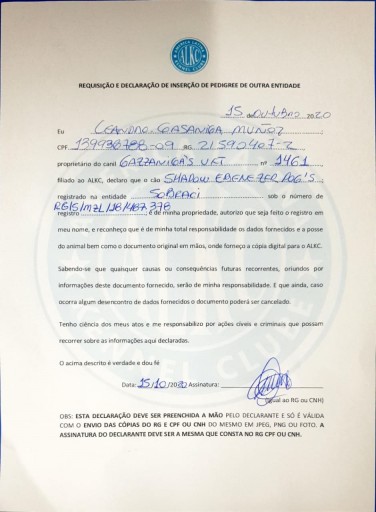 ALKC
REQUISIÇÃO E DECLARAÇÃO DE INSERÇÃO DE PEDIGREE DE OUTRA ENTIDADE
15 de OUTUBRO 2020
Eu LEANDRO GASANIGA MUÑOZ
CPF 139938788-09 RG 21590407-2
proprietário do canil GAZZANIGA'S U.F.T nº 1461
filiado ao ALKC, declaro que o cão SHADOW EBENEZER DOG'S
registrado na entidade SOBRACI sob o número de
registro RGIS/MZL/18/487.378 é de minha propriedade, autorizo que seja feito o registro em
meu nome, e reconheço que é de minha total responsabilidade os dados fornecidos e a posse
do animal bem como o documento original em mãos, onde forneço a cópia digital para o ALKC.
Sabendo-se que quaisquer causas ou consequências futuras recorrentes, oriundos por
informações deste documento fornecido, serão de minha responsabilidade. E que ainda, caso
ocorra algum desencontro de dados fornecidos o documento poderá ser cancelado.
Tenho ciência dos meus atos e me responsabilizo por ações cíveis e criminais que possam
recorrer sobre as informações aqui declarados.
O acima descrito é verdade e dou fé
Data: 15/10/2020 Assinatura:
(Igual ao RG ou CNH)
OBS: ESTA DECLARAÇÃO DEVE SER PREENCHIDA A MÃO PELO DECLARANTE E SÓ É VÁLIDA
COM O ENVIO DAS CÓPIAS DO RG E CPF OU CNH DO MESMO EM JPEG, PNG OU FOTO. A
ASSINATURA DO DECLARANTE DEVE SER A MESMA QUE CONSTA NO RG CPF OU CNH.